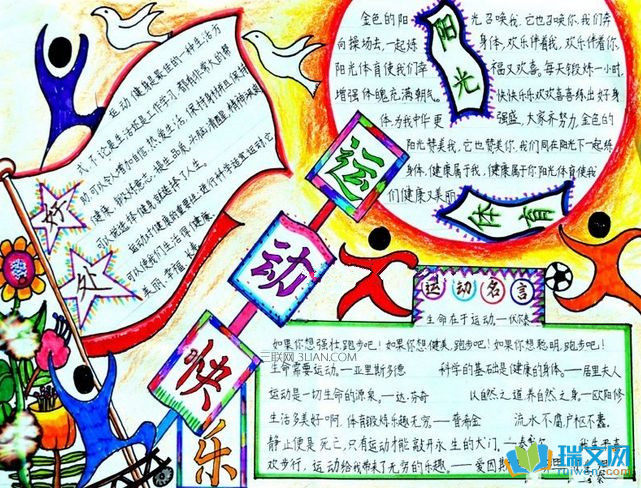 运动健身是最佳的一种生活方
式，不论是生活还是工作学习，都有你意大的帮
助，可以令人增加自信，热爱生活，保持身材并且保持
健康，锻炼意志，提出品质，头脑清醒，精神焕发
可以说选择健身就选择了人生。
运动对健康的重要性，进行科学适宜运动它
可以使我们生活得健康、
美丽、幸福、长寿
好处
金色的阳光召唤我，它也召唤你，我们奔
向操场去，一起炼身体，欢乐伴着我，欢乐伴着你，
阳光体育使我们幸福又欢喜。每天锻炼一小时，
增强体魄充满朝气。快快乐乐欢欢喜喜练出好身
体为我中华更强盛，大家齐努力，金色的
阳光赞美我，它也赞美你，我们同在阳光下一起练
身体，健康属于我，健康属于你阳光体育使我
们健康又美丽
阳光
体育
运动快乐
运动名言
生命在于运动——伏尔泰
如果你想强壮，跑步吧！如果你想健美，跑步吧！如果你想聪明，跑步吧！
生命需要运动。——亚里斯多德 科学的基础是健康的身体。——居里夫人
运动是一切生命的源泉，——达·芬奇 以自然之道，养自然之身——欧阳修
生活多美好啊，体育锻炼乐趣无穷。——普希金 流水不腐户枢不蠹。
静止便是死亡，只有运动才能敲开永生的大门。
欢步行，运动给我带来了无穷的乐趣。——爱因斯
三联网 3LIAN.COM
瑞文网
ruiwen.com